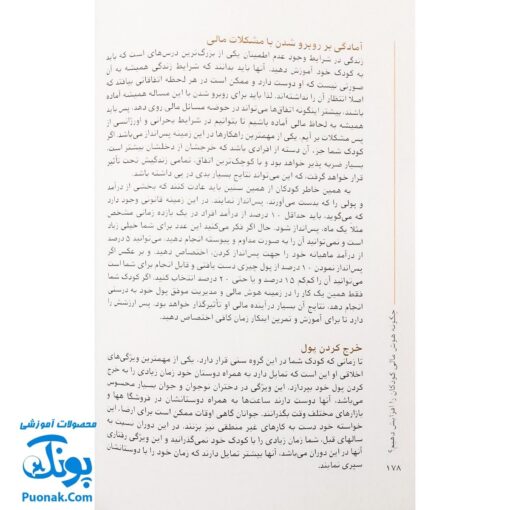 آمادگی بر روبرو شدن با مشکلات مالی
زندگی در شرایط وجود عدم اطمینان یکی از بزرگ‌ترین درس‌های است که باید
به کودک خود آموزش دهید. آنها باید بدانند که شرایط زندگی همیشه به آن
صورتی نیست که او دوست دارد و ممکن است در هر لحظه اتفاقاتی بیافتد که
اصلا انتظار آن را نداشته‌اند. لذا باید برای روبرو شدن با این مساله همیشه آماده
باشند، بیشتر اینگونه اتفاق‌ها می‌تواند در حوضه مسائل مالی روی دهد. پس باید
همیشه به لحاظ مالی آماده باشیم تا بتوانیم در شرایط بحرانی و اورژانسی از
پس مشکلات بر آیم. یکی از مهمترین راهکارها در این زمینه پس‌انداز می‌باشد اگر
کودک شما جزء آن دسته از افرادی باشد که خرجشان از دخلشان بیشتر است،
بسیار ضربه پذیر خواهد بود و با کوچک‌ترین اتفاق، تمامی زندگیش تحت تأثیر
قرار خواهد گرفت، که این می‌تواند نتایج بسیار بدی در پی داشته باشد.
به همین خاطر کودکان از همین سنین باید عادت کنند که بخشی از درآمد
و پولی را که بدست می‌آورند، پس‌انداز نمایند. در این زمینه قانونی وجود دارد
که می‌گوید، باید حداقل ۱۰ درصد از درآمد افراد در یک بازده زمانی مشخص
مثلا یک ماه، پس‌انداز شود. حال اگر فکر می‌کنید این عدد برای شما خیلی زیاد
است و نمی‌توانید آن را به صورت مداوم و پیوسته انجام دهید، می‌توانید ۵ درصد
از درآمد ماهیانه خود را جهت پس‌انداز کردن، اختصاص دهید. و بر عکس اگر
پس‌انداز نمودن ۱۰ درصد از پول چیزی دست یافتنی و قابل انجام برای شما است
می‌توانید آن را کم‌کم ۱۵ درصد و یا حتی ۲۰ درصد انتخاب کنید. اگر کودک شما
فقط همین یک کار را در زمینه هوش مالی و مدیریت موفق پول خود به درستی
انجام دهد، نتایج آن بسیار درآینده مالی او تأثیرگذار خواهد بود. پس ارزشش را
دارد تا برای آموزش و تمرین اینکار زمان کافی اختصاص دهید.
خرج کردن پول
تا زمانی که کودک شما در این گروه سنی قرار دارد، یکی از مهمترین ویژگی‌های
اخلاقی او این است که تمایل دارد به همراه دوستان خود زمان زیادی را به خرج
کردن پول خود بپردازد. این ویژگی در دختران نوجوان و جوان بسیار محسوس
می‌باشد، آنها دوست دارند ساعت‌ها به همراه دوستانشان در فروشگا هها و
بازارهای مختلف وقت بگذرانند. جوانان گاهی اوقات ممکن است برای ارضا، این
خواسته خود دست به کارهای غیر منطقی نیز بزنند. در این دوران نسبت به
سالهای قبل، شما زمان زیادی را با کودک خود نمی‌گذرانید و این ویژگی رفتاری
آنها در این دوران می‌باشد، آنها بیشتر تمایل دارند که زمان خود را با دوستانشان
سپری نمایند.
چگونه هوش مالی کودکان را افزایش دهیم؟
۱۷۸
محصولات آموزشی
پونک
Puonak.Com